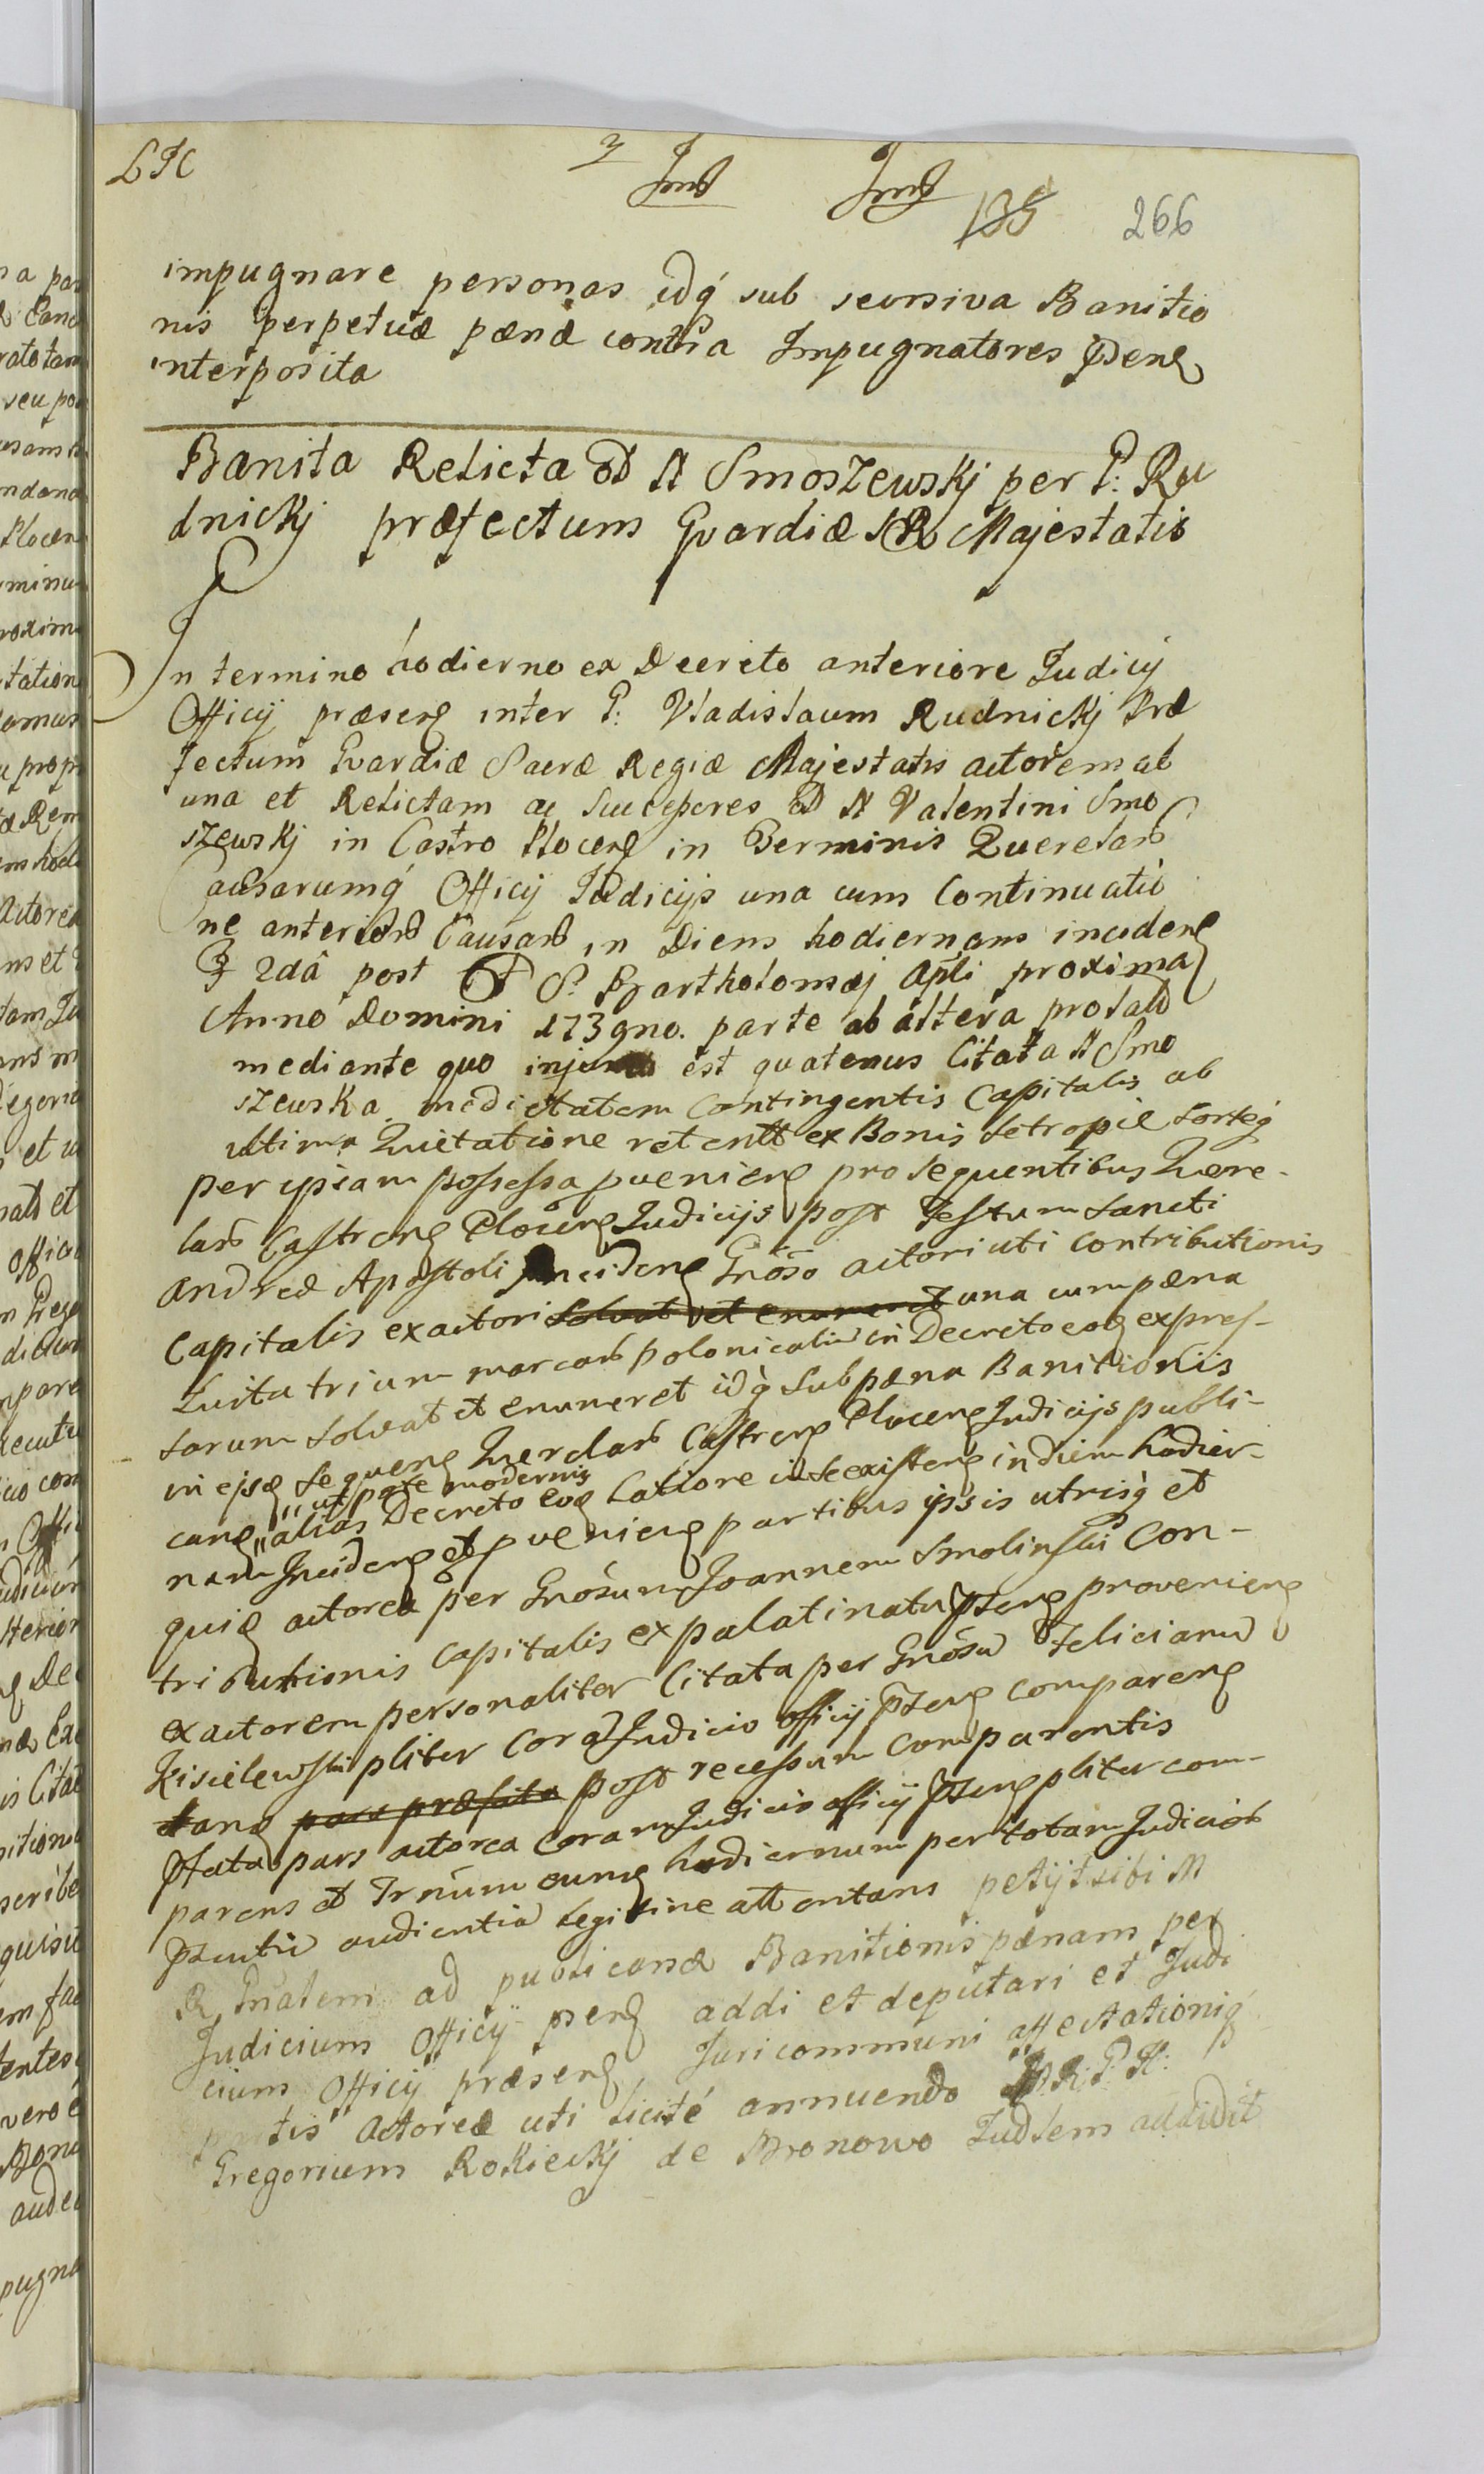 LK
135 266
impugnare personas idq́ sub recursiva Banitio
nis perpetuæ pænâ contra Impugnatores
interposita
Banita Relicta N Smoszewskj per P: Ru
dnickj præfectum Gvardiæ SR Majestatis
In termino hodierno ex Decreto anteriore Judicij
Officij præsen inter P: Vladislaum Rudnickj Præ
fectum Gvardiæ Sacræ Regiæ Majestatis actorem ab
una et Relictam ac Succeßores N Valentini Smo
szewskj in Castro Plocen in Terminis Querelar
Causarumq́ Officij Judicijs una cum Continuatio
ne anterior Causar in Diem hodiernam inciden
2dâ post S. Bartholomæj Apli proxima
Anno Domini 173gno. parte ab altera prolato
mediante quo est quatenus Citata N Smo
szewska medietatem Contingentis Capitalis ab
ultima Quietatione retent ex Bonis
per ipsam poßeßa pvenien pro sequentibus Quere-
lar Castren Plocen Judicijs post Festum Sancti
Andreæ Apostoli inciden Gnoso actori uti contributionis
Capitalis exactori solvat et enumeret una cum pæna
Luita trium marcar polonicaliu in Decreto eod expreß-
sarum solvat et enumeret idq́ sub pæna Banitionis
in ejsd sequen Querelar Castren Plocen Judicijs publi-
can ut pote modernis
alias Decreto eod latiore in se existen in diem hodier-
nam Inciden et pvenien partibus ipsis utrisq́ et
quid actorea per Gnosum Joannem Smolinski Con-
tributionis Capitalis ex palatinatu pzen provenien
exactorem personaliter Citata per Gnosu Felicianu
Kisielewski pliter Cora Judicio officij pzen comparen
tand pars præfata post recessum comparentis
Pfata pars actorea coram Judicio officij pzen pliter com-
parens et Trnum eund hodiernum per totam Judicior
pzentiu audientia legitime attentans petijt sibi M
R Pnalem ad publicandæ Banitionis pænam per
Judicium Officij psen addi et deputari et Judi
cium Officij præsen Juri communi affectationiq́
partis Actoreæ uti licité annuendo R: P: N:
Gregorium Rokieckj de Bronowo Judlem addidit